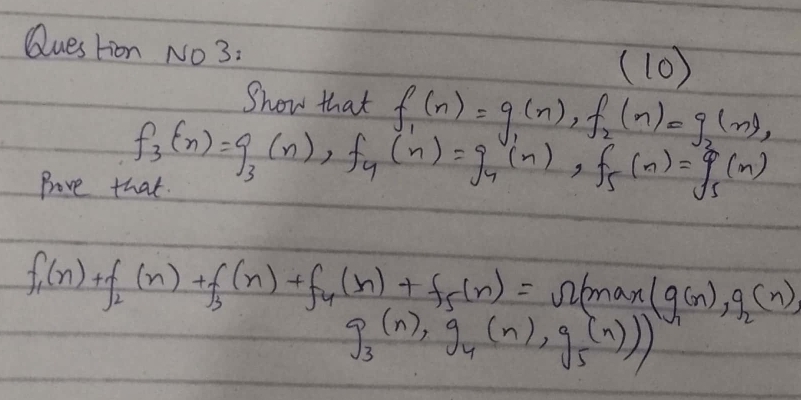 Question NO 3:
(10)
Show that f₁(n) = g₁(n), f₂(n) = g₂(n),
f₃(n) = g₃(n), f₄(n) = g₄(n), f₅(n) = g₅(n)
Prove that.
f₁(n) + f₂(n) + f₃(n) + f₄(n) + f₅(n) = Ω(max(g₁(n), g₂(n),
g₃(n), g₄(n), g₅(n)))